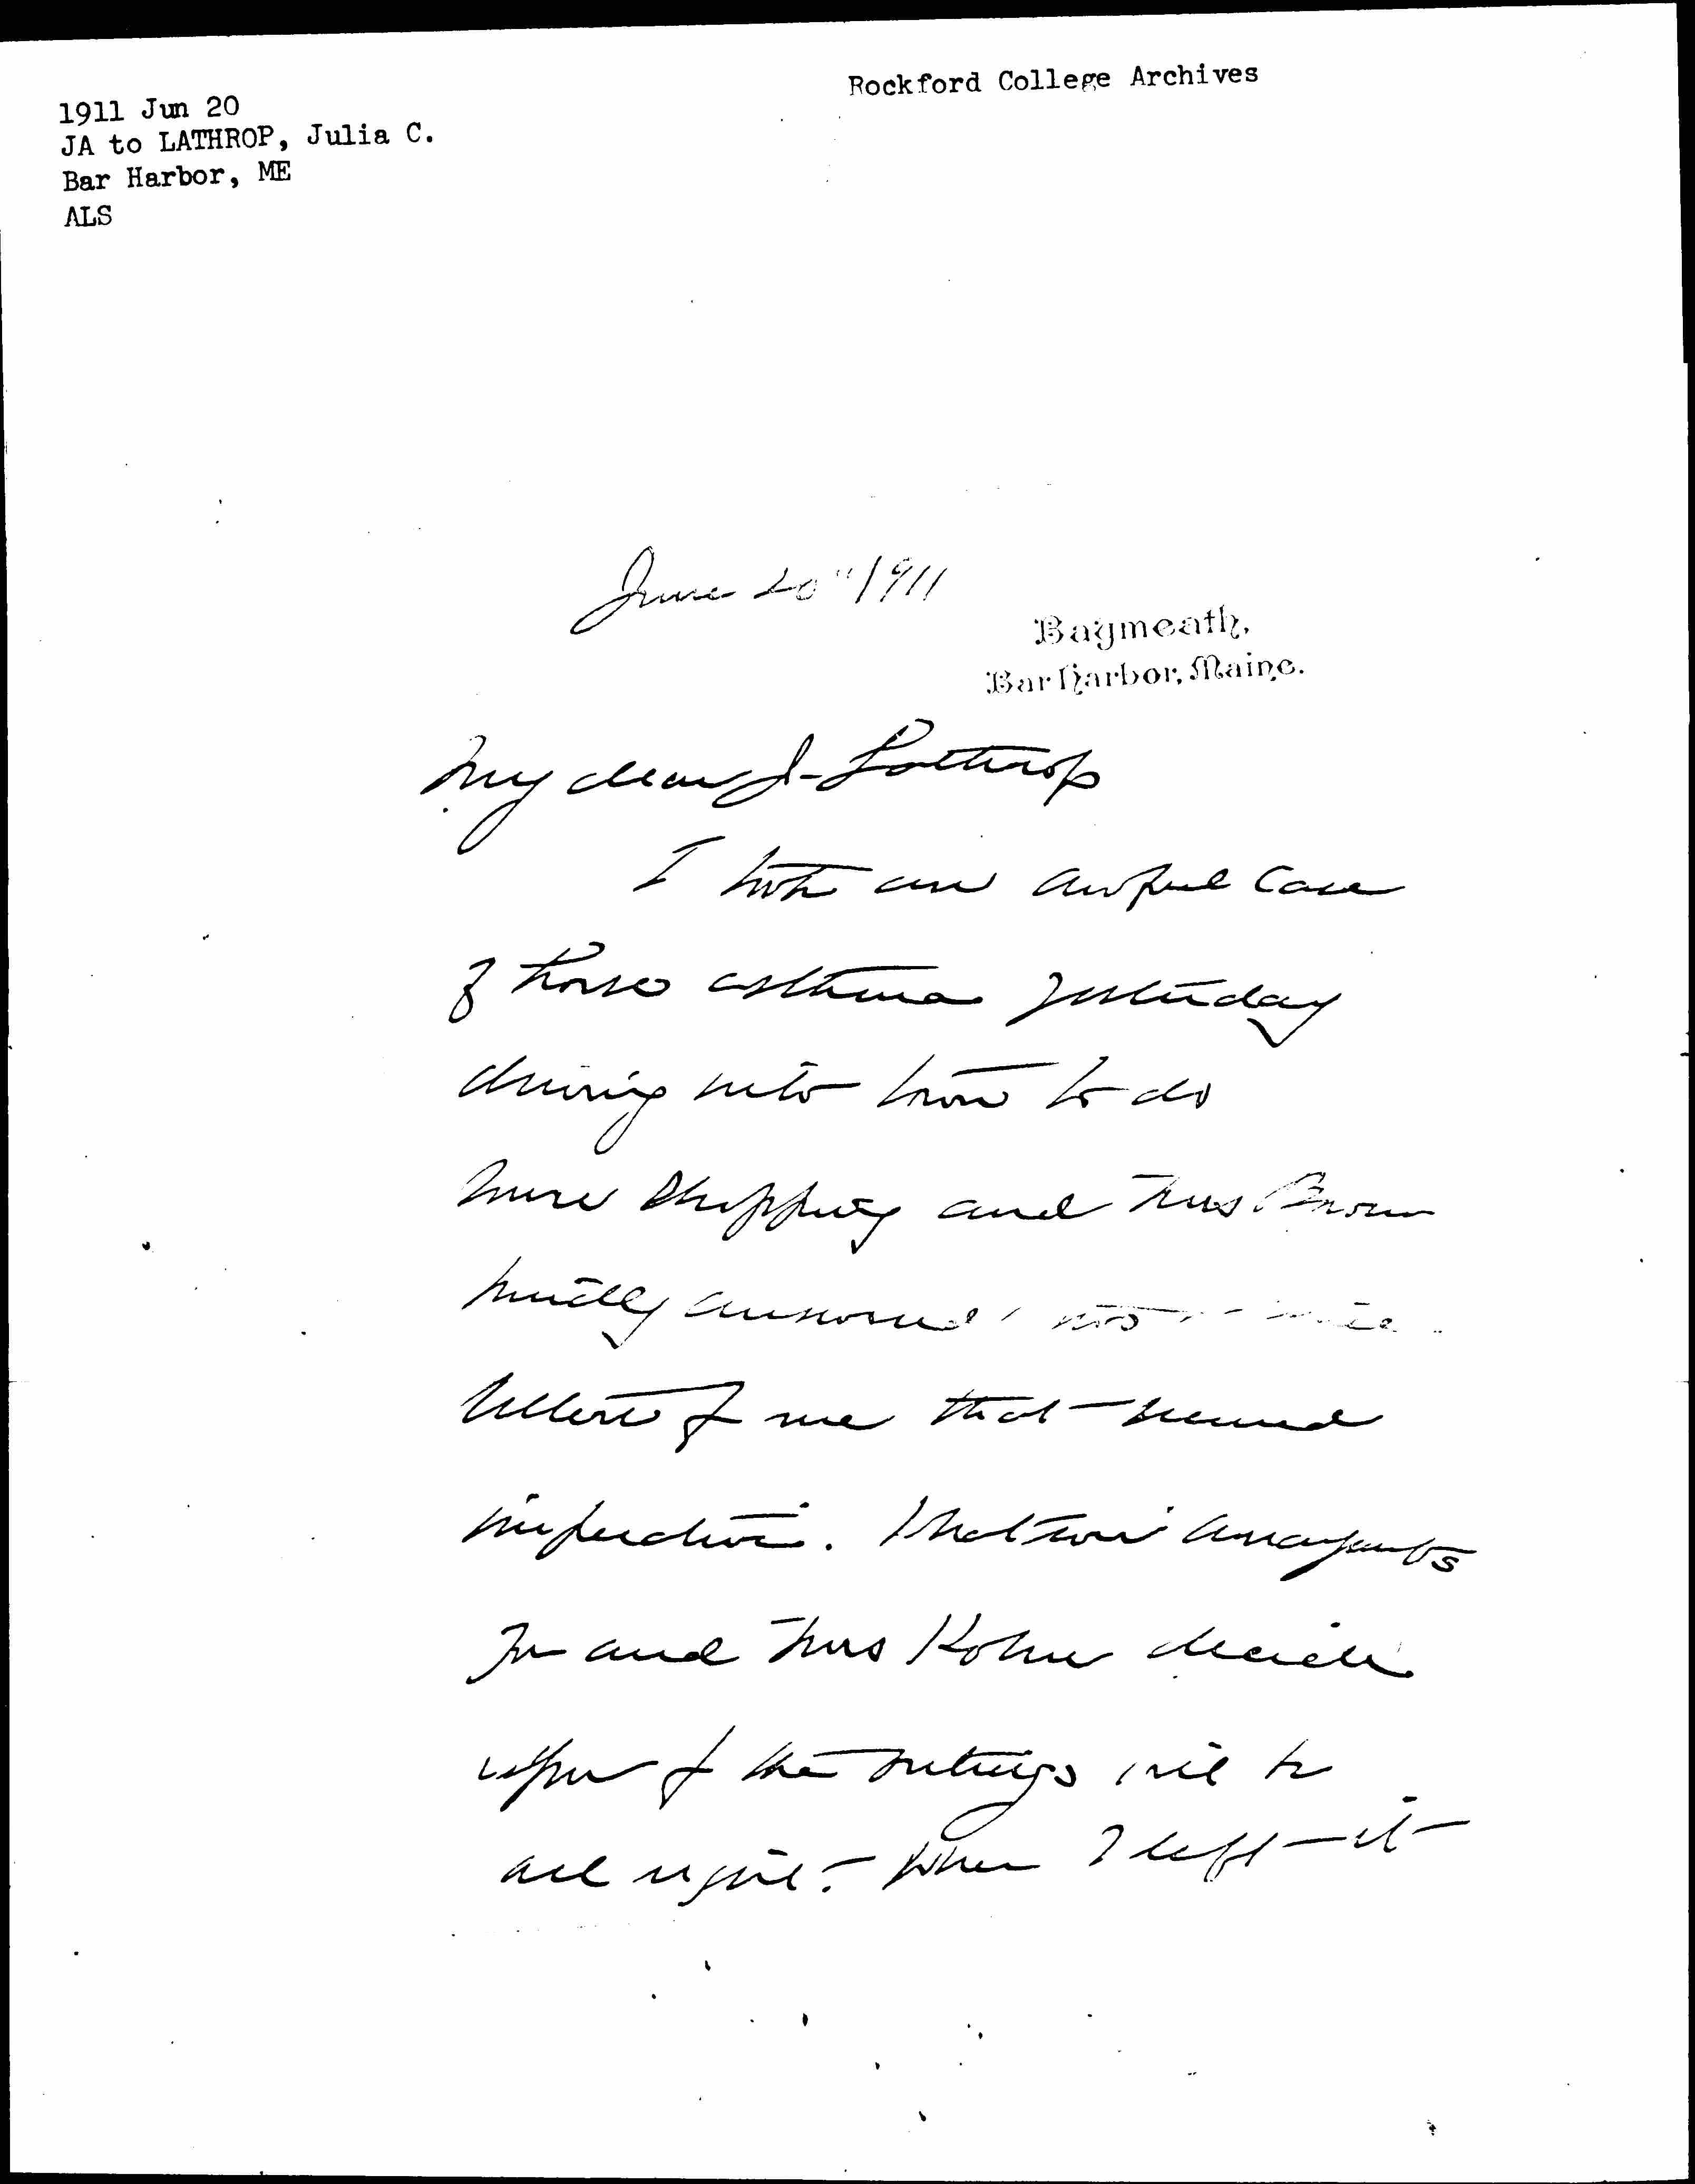 Rockford College Archives
1911 Jun 20
JA to LATHROP, Julia C.
Bar Harbor, ME
ALS
June 20" 1911
Baymeath,
Bar Harbor, Maine.
My dear J- Lathrop
I took an awful case
of horse asthma yesterday
driving into town to do
some shopping and Mrs Bowen
kindly answered
letters for me that seemed
imperative. Whatever arrangements
you and Mrs Kohn decide
upon for the outings will be
all right. When I left it